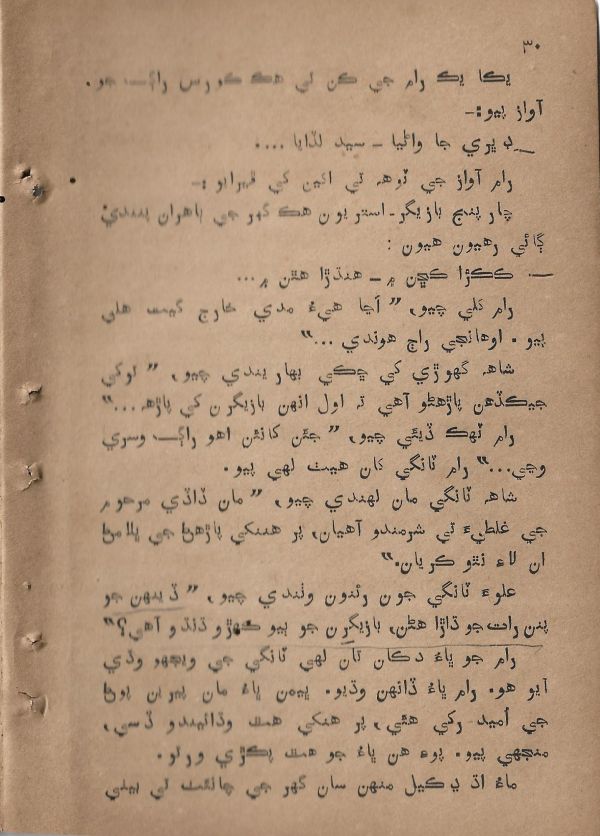 ٣٠
يڪا يڪ رام جي ڪن تي هڪ ڪورس راڳ جو.
آواز پيو:ـ
ــ ڊ پري جا واڻيا ـ سيد لڏايا ....
رام آواز جي ٽوهہ تي اکين کي ڦيرايو :ـ
چار پنج بازيگر۔ استريون هڪ گهر جي ٻاهران پنندي
ڳائي رهيون هيون :
ــ ڪڪڙا ڪڇن ۾ ــ هنڌڙا هٿن ۾ ...
رام کلي چيو، ”اڄا هيءُ مدي خارج گيت هلي
پيو. اوهانجي راڄ هوندي ...“
شاهہ گهوڙي کي چڪي بهاريندي چيو، ”توکي
جيڪڏهن پاڙهڻو آهي تہ اول انهن بازيگرن کي پاڙهہ...“
رام ٽهڪ ڏيئي چيو، ”جئن کانئن اهو راڳ وسري
وڃي...“ رام ٽانگي تان هيٺ لهي پيو.
شاهہ ٽانگي مان لهندي چيو، ”مان ڏاڏي مرحوم
جي غلطيءَ تي شرمندو آهيان، پر هننکي پاڙهڻ جي پلامڻ
ان لاءِ نٿو ڪريان.“
علوءَ ٽانگي جون رئنون وٺندي چيو، ”ڏينهن جو
پنن رات جو ڌاڙا هڻن، بازيگرن جو ٻيو ڪهڙو ڌنڌو آهي؟“
رام جو ڀاءُ دڪان تان لهي ٽانگي جي ويجهو وڌي
آيو هو. رام ڀاءُ ڏانهن وڌيو. پيمن ڀاءُ مان پيرين پوڻ
جي اُميد رکي هئي، پر هنکي هٿ وڌائيندو ڏسي،
منجهي پيو. پوءِ هن ڀاءُ جو هٿ پڪڙي ورتو.
ماءُ اڌ ڍڪيل منهن سان گهر جي چائنٺ تي بيٺي